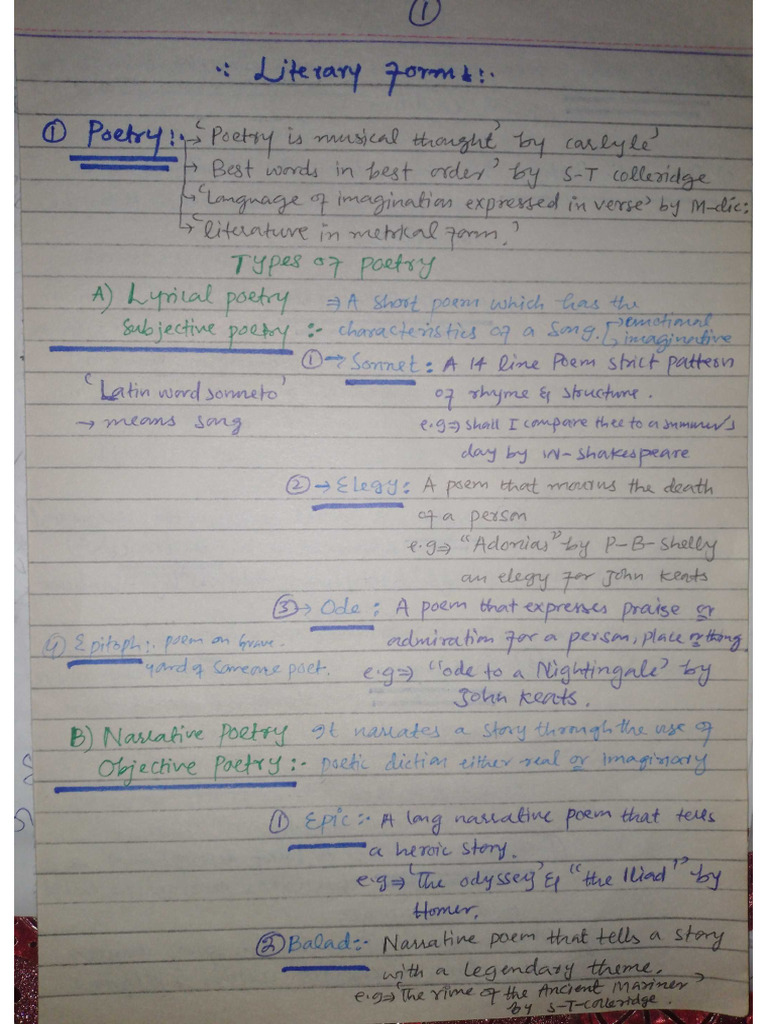 1
Literary Forms:.
① Poetry:. → 'Poetry is musical thought' by carlyle'
→ Best words in best order' by S-T Colleridge
→ 'Language of imagination expressed in verse' by M-dic:
→ 'literature in metrical form.'
Types of Poetry
A) Lyrical poetry ⇒ A short poem which has the
Subjective poetry :- characteristics of a song. → emotional
→ imaginative
① → Sonnet : A 14 line Poem strict pattern
'Latin word sonneto' of rhyme & structure.
→ means song e.g ⇒ shall I compare thee to a summer's
day by W-Shakespeare
② → Elegy : A poem that mourns the death
of a person
e.g ⇒ "Adonias" by P-B-Shelly
an elegy for John Keats
③ → Ode : A poem that expresses praise or
4) Epitaph:. poem on grave. admiration for a person, place or thing
yard of someone poet. e.g ⇒ "ode to a Nightingale' by
John Keats.
B) Narrative Poetry It narrates a story through the use of
Objective Poetry :- poetic diction either real or Imaginary
① Epic:- A long narrative poem that tells
a heroic story.
e.g ⇒ 'The odyssey' & "the Iliad" by
Homer.
② Balad:- Narrative poem that tells a story
with a legendary theme.
e.g ⇒ 'The rime of the Ancient Mariner'
by S-T-Colleridge.